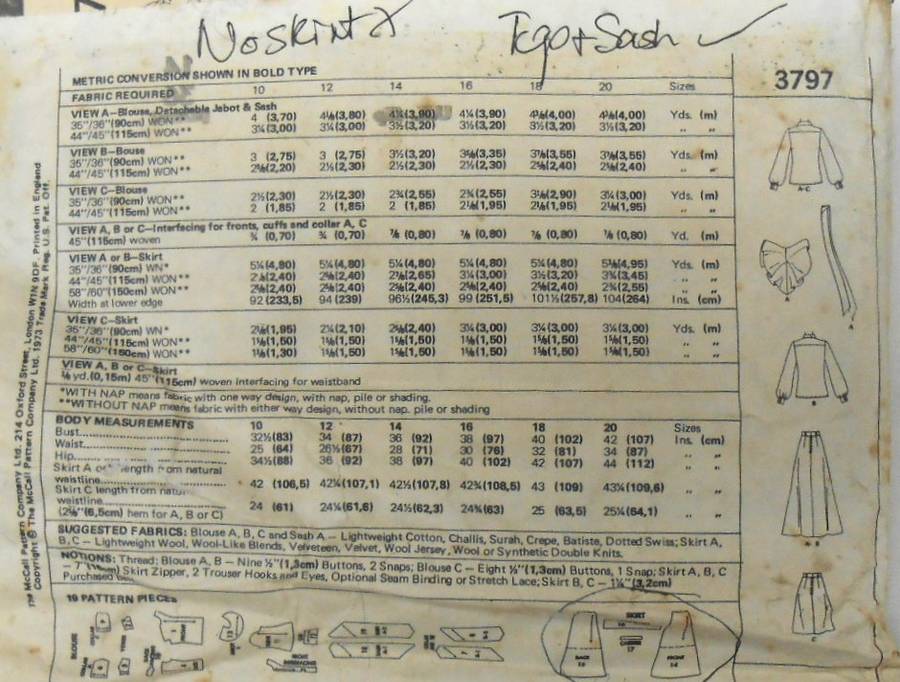 No skirt X Top + Sash ✓
METRIC CONVERSION SHOWN IN BOLD TYPE
3797
FABRIC REQUIRED 10 12 14 16 18 20 Sizes
VIEW A—Blouse, Detachable Jabot & Sash
35"/36"(90cm) WON** 4 (3,70) 4⅛(3,80) 4¼(3,90) 4¼(3,90) 4⅜(4,00) 4⅜(4,00) Yds. (m)
44"/45"(115cm) WON** 3¼(3,00) 3¼(3,00) 3½(3,20) 3½(3,20) 3½(3,20) 3½(3,20) " "
VIEW B—Bouse
35"/36"(90cm) WON** 3 (2,75) 3 (2,75) 3½(3,20) 3⅝(3,35) 3⅞(3,55) 3⅞(3,55) Yds. (m)
44"/45"(115cm) WON** 2⅜(2,20) 2½(2,30) 2½(2,30) 2½(2,30) 2⅝(2,40) 2⅝(2,40) " "
VIEW C—Blouse
35"/36"(90cm) WON** 2½(2,30) 2½(2,30) 2¾(2,55) 2¾(2,55) 3⅛(2,90) 3¼(3,00) Yds. (m)
44"/45"(115cm) WON** 2 (1,85) 2 (1,85) 2 (1,85) 2⅛(1,95) 2⅛(1,95) 2⅛(1,95) " "
VIEW A, B or C—Interfacing for fronts, cuffs and collar A, C
45"(115cm) woven ¾ (0,70) ¾ (0,70) ⅞ (0,80) ⅞ (0,80) ⅞ (0,80) ⅞ (0,80) Yd. (m)
VIEW A or B—Skirt
35"/36"(90cm) WN* 5¼(4,80) 5¼(4,80) 5¼(4,80) 5¼(4,80) 5¼(4,80) 5⅜(4,95) Yds. (m)
44"/45"(115cm) WON** 2⅝(2,40) 2⅝(2,40) 2⅞(2,65) 3¼(3,00) 3½(3,20) 3¾(3,45) " "
58"/60"(150cm) WON** 2⅝(2,40) 2⅝(2,40) 2⅝(2,40) 2⅝(2,40) 2⅝(2,40) 2¾(2,55) " "
Width at lower edge 92 (233,5) 94 (239) 96½(245,3) 99 (251,5) 101½(257,8) 104(264) Ins. (cm)
VIEW C—Skirt
35"/36"(90cm) WN* 2⅛(1,95) 2¼(2,10) 2⅝(2,40) 3¼(3,00) 3¼(3,00) 3¼(3,00) Yds. (m)
44"/45"(115cm) WON** 1⅝(1,50) 1⅝(1,50) 1⅝(1,50) 1⅝(1,50) 1⅝(1,50) 1⅝(1,50) " "
58"/60"(150cm) WON** 1⅜(1,30) 1⅝(1,50) 1⅝(1,50) 1⅝(1,50) 1⅝(1,50) 1⅝(1,50) " "
VIEW A, B or C—Skirt
⅛ yd.(0,15m) 45"(115cm) woven interfacing for waistband
*WITH NAP means fabric with one way design, with nap, pile or shading.
**WITHOUT NAP means fabric with either way design, without nap. pile or shading
BODY MEASUREMENTS 10 12 14 16 18 20 Sizes
Bust 32½(83) 34 (87) 36 (92) 38 (97) 40 (102) 42 (107) Ins. (cm)
Waist 25 (64) 26½(67) 28 (71) 30 (76) 32 (81) 34 (87) " "
Hip 34½(88) 36 (92) 38 (97) 40 (102) 42 (107) 44 (112) " "
Skirt A length from natural
waistline 42 (106,5) 42¼(107,1) 42½(107,8) 42¾(108,5) 43 (109) 43¼(109,6) " "
Skirt C length from
waistline 24 (61) 24¼(61,6) 24½(62,3) 24¾(63) 25 (63,5) 25¼(64,1) " "
(2⅝"(6,5cm) hem for A, B or C)
SUGGESTED FABRICS: Blouse A, B, C and Sash A — Lightweight Cotton, Challis, Surah, Crepe, Batiste, Dotted Swiss; Skirt A,
B, C — Lightweight Wool, Wool-Like Blends, Velveteen, Velvet, Wool Jersey, Wool or Synthetic Double Knits.
NOTIONS: Thread; Blouse A, B — Nine ½"(1,3cm) Buttons, 2 Snaps; Blouse C — Eight ½"(1,3cm) Buttons, 1 Snap; Skirt A, B, C
— 7" Skirt Zipper, 2 Trouser Hooks and Eyes, Optional Seam Binding or Stretch Lace; Skirt B, C — 1¼"(3,2cm)
Purchased
19 PATTERN PIECES
BLOUSE
SKIRT
BACK
16
17
FRONT
14
A-C
A
A
B
A B
C
The McCall Pattern Company Ltd. 214 Oxford Street, London W1N 9DF. Printed in England
Copyright © The McCall Pattern Company Ltd. 1973 Trade Mark Reg. U.S. Pat. Off.